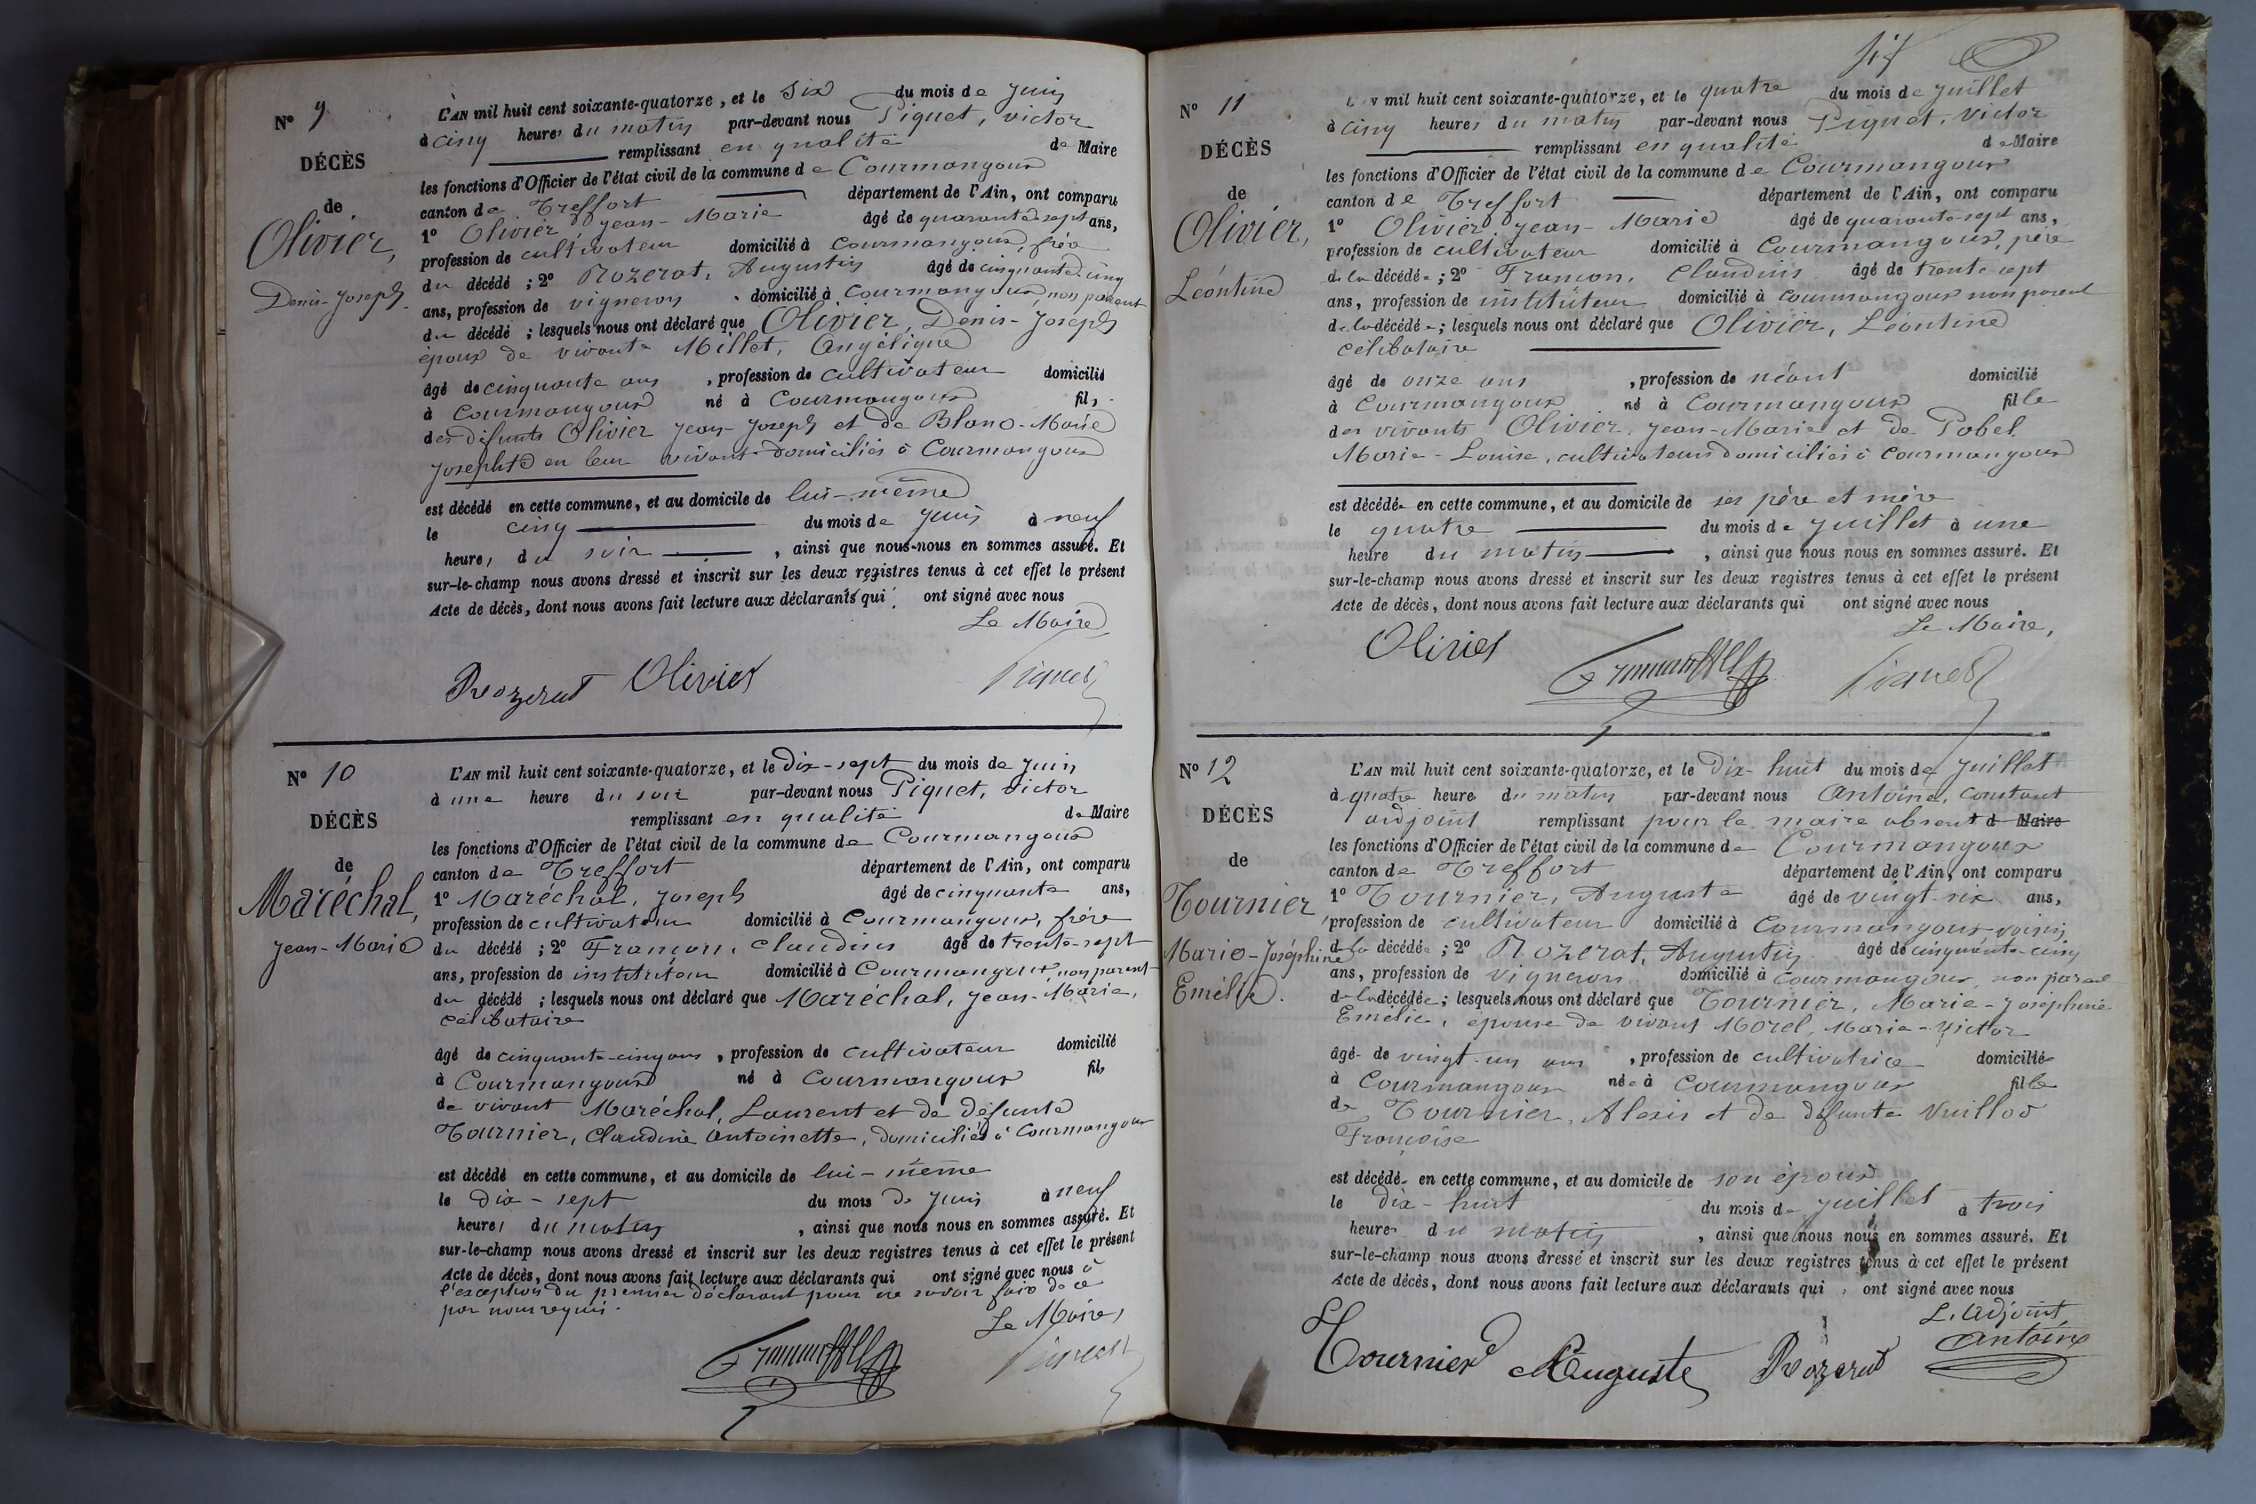 N° 9
DÉCÈS
de
Olivier,
Denis-Joseph.
L'AN mil huit cent soixante-quatorze, et le Six du mois de Juin
à cinq heures du matin par-devant nous Piquet, Victor
remplissant en qualité de Maire
les fonctions d'Officier de l'état civil de la commune de Courmangoux
canton de Treffort département de l'Ain, ont comparu
1° Olivier Jean-Marie âgé de quarante-sept ans,
profession de cultivateur domicilié à Courmangoux, frère
du décédé ; 2° Rozerat, Augustin âgé de cinquante-cinq
ans, profession de vigneron domicilié à Courmangoux, non parent
du décédé ; lesquels nous ont déclaré que Olivier, Denis-Joseph
époux de vivante Millet, Angélique
âgé de cinquante ans, profession de cultivateur domicilié
à Courmangoux né à Courmangoux fils
des défunts Olivier Jean-Joseph et de Blanc-Marie
Josephte en leur vivant domiciliés à Courmangoux
est décédé en cette commune, et au domicile de lui-même
le cinq du mois de Juin à neuf
heures du soir, ainsi que nous-nous en sommes assuré. Et
sur-le-champ nous avons dressé et inscrit sur les deux registres tenus à cet effet le présent
Acte de décès, dont nous avons fait lecture aux déclarants qui ont signé avec nous
Le Maire
Rozerat Olivier Piquet
N° 10
DÉCÈS
de
Maréchal,
Jean-Marie
L'AN mil huit cent soixante-quatorze, et le Dix-sept du mois de Juin
à une heure du soir par-devant nous Piquet, Victor
remplissant en qualité de Maire
les fonctions d'Officier de l'état civil de la commune de Courmangoux
canton de Treffort département de l'Ain, ont comparu
1° Maréchal, Joseph âgé de cinquante ans,
profession de cultivateur domicilié à Courmangoux, frère
du décédé ; 2° Francon, Claudius âgé de trente-sept
ans, profession de instituteur domicilié à Courmangoux non parent
du décédé ; lesquels nous ont déclaré que Maréchal, Jean-Marie,
célibataire
âgé de cinquante-cinq ans, profession de cultivateur domicilié
à Courmangoux né à Courmangoux fils
de vivant Maréchal, Laurent et de défunte
Tournier, Claudine Antoinette, domiciliés à Courmangoux
est décédé en cette commune, et au domicile de lui-même
le dix-sept du mois de Juin à neuf
heures du matin, ainsi que nous nous en sommes assuré. Et
sur-le-champ nous avons dressé et inscrit sur les deux registres tenus à cet effet le présent
Acte de décès, dont nous avons fait lecture aux déclarants qui ont signé avec nous à
l'exception du premier déclarant pour ne savoir faire de ce
par nous requis.
Le Maire,
Piquet
six
N° 11
DÉCÈS
de
Olivier,
Léontine
L'AN mil huit cent soixante-quatorze, et le quatre du mois de Juillet
à cinq heures du matin par-devant nous Piquet, Victor
remplissant en qualité de Maire
les fonctions d'Officier de l'état civil de la commune de Courmangoux
canton de Treffort département de l'Ain, ont comparu
1° Olivier Jean-Marie âgé de quarante-sept ans,
profession de cultivateur domicilié à Courmangoux, père
de la décédée ; 2° Francon, Claudius âgé de trente-sept
ans, profession de instituteur domicilié à Courmangoux non parent
de la décédée ; lesquels nous ont déclaré que Olivier, Léontine
célibataire
âgé de onze ans, profession de néant domicilié
à Courmangoux né à Courmangoux fille
des vivants Olivier, Jean-Marie et de Pobel
Marie-Louise, cultivateurs domiciliés à Courmangoux
est décédée en cette commune, et au domicile de ses père et mère
le quatre du mois de Juillet à une
heure du matin, ainsi que nous nous en sommes assuré. Et
sur-le-champ nous avons dressé et inscrit sur les deux registres tenus à cet effet le présent
Acte de décès, dont nous avons fait lecture aux déclarants qui ont signé avec nous
Le Maire,
Olivier Piquet
N° 12
DÉCÈS
de
Tournier,
Marie-Joséphine
Emélie.
L'AN mil huit cent soixante-quatorze, et le Dix-huit du mois de Juillet
à quatre heures du matin par-devant nous Antoine, Constant
adjoint remplissant pour le maire absent d Maire
les fonctions d'Officier de l'état civil de la commune de Courmangoux
canton de Treffort département de l'Ain, ont comparu
1° Tournier, Auguste âgé de vingt-six ans,
profession de cultivateur domicilié à Courmangoux voisin
de la décédée ; 2° Rozerat, Augustin âgé de cinquante-cinq
ans, profession de vigneron domicilié à Courmangoux, non parent
de la décédée ; lesquels nous ont déclaré que Tournier, Marie-Joséphine
Emélie, épouse de vivant Morel, Marie-Victor
âgé de vingt-un ans, profession de cultivatrice domiciliée
à Courmangoux née à Courmangoux fille
de Tournier, Alexis et de défunte Vuillod
Françoise
est décédée en cette commune, et au domicile de son époux
le dix-huit du mois de Juillet à trois
heures du matin, ainsi que nous nous en sommes assuré. Et
sur-le-champ nous avons dressé et inscrit sur les deux registres tenus à cet effet le présent
Acte de décès, dont nous avons fait lecture aux déclarants qui ont signé avec nous
L'Adjoint,
Tournier Auguste Rozerat Antoine